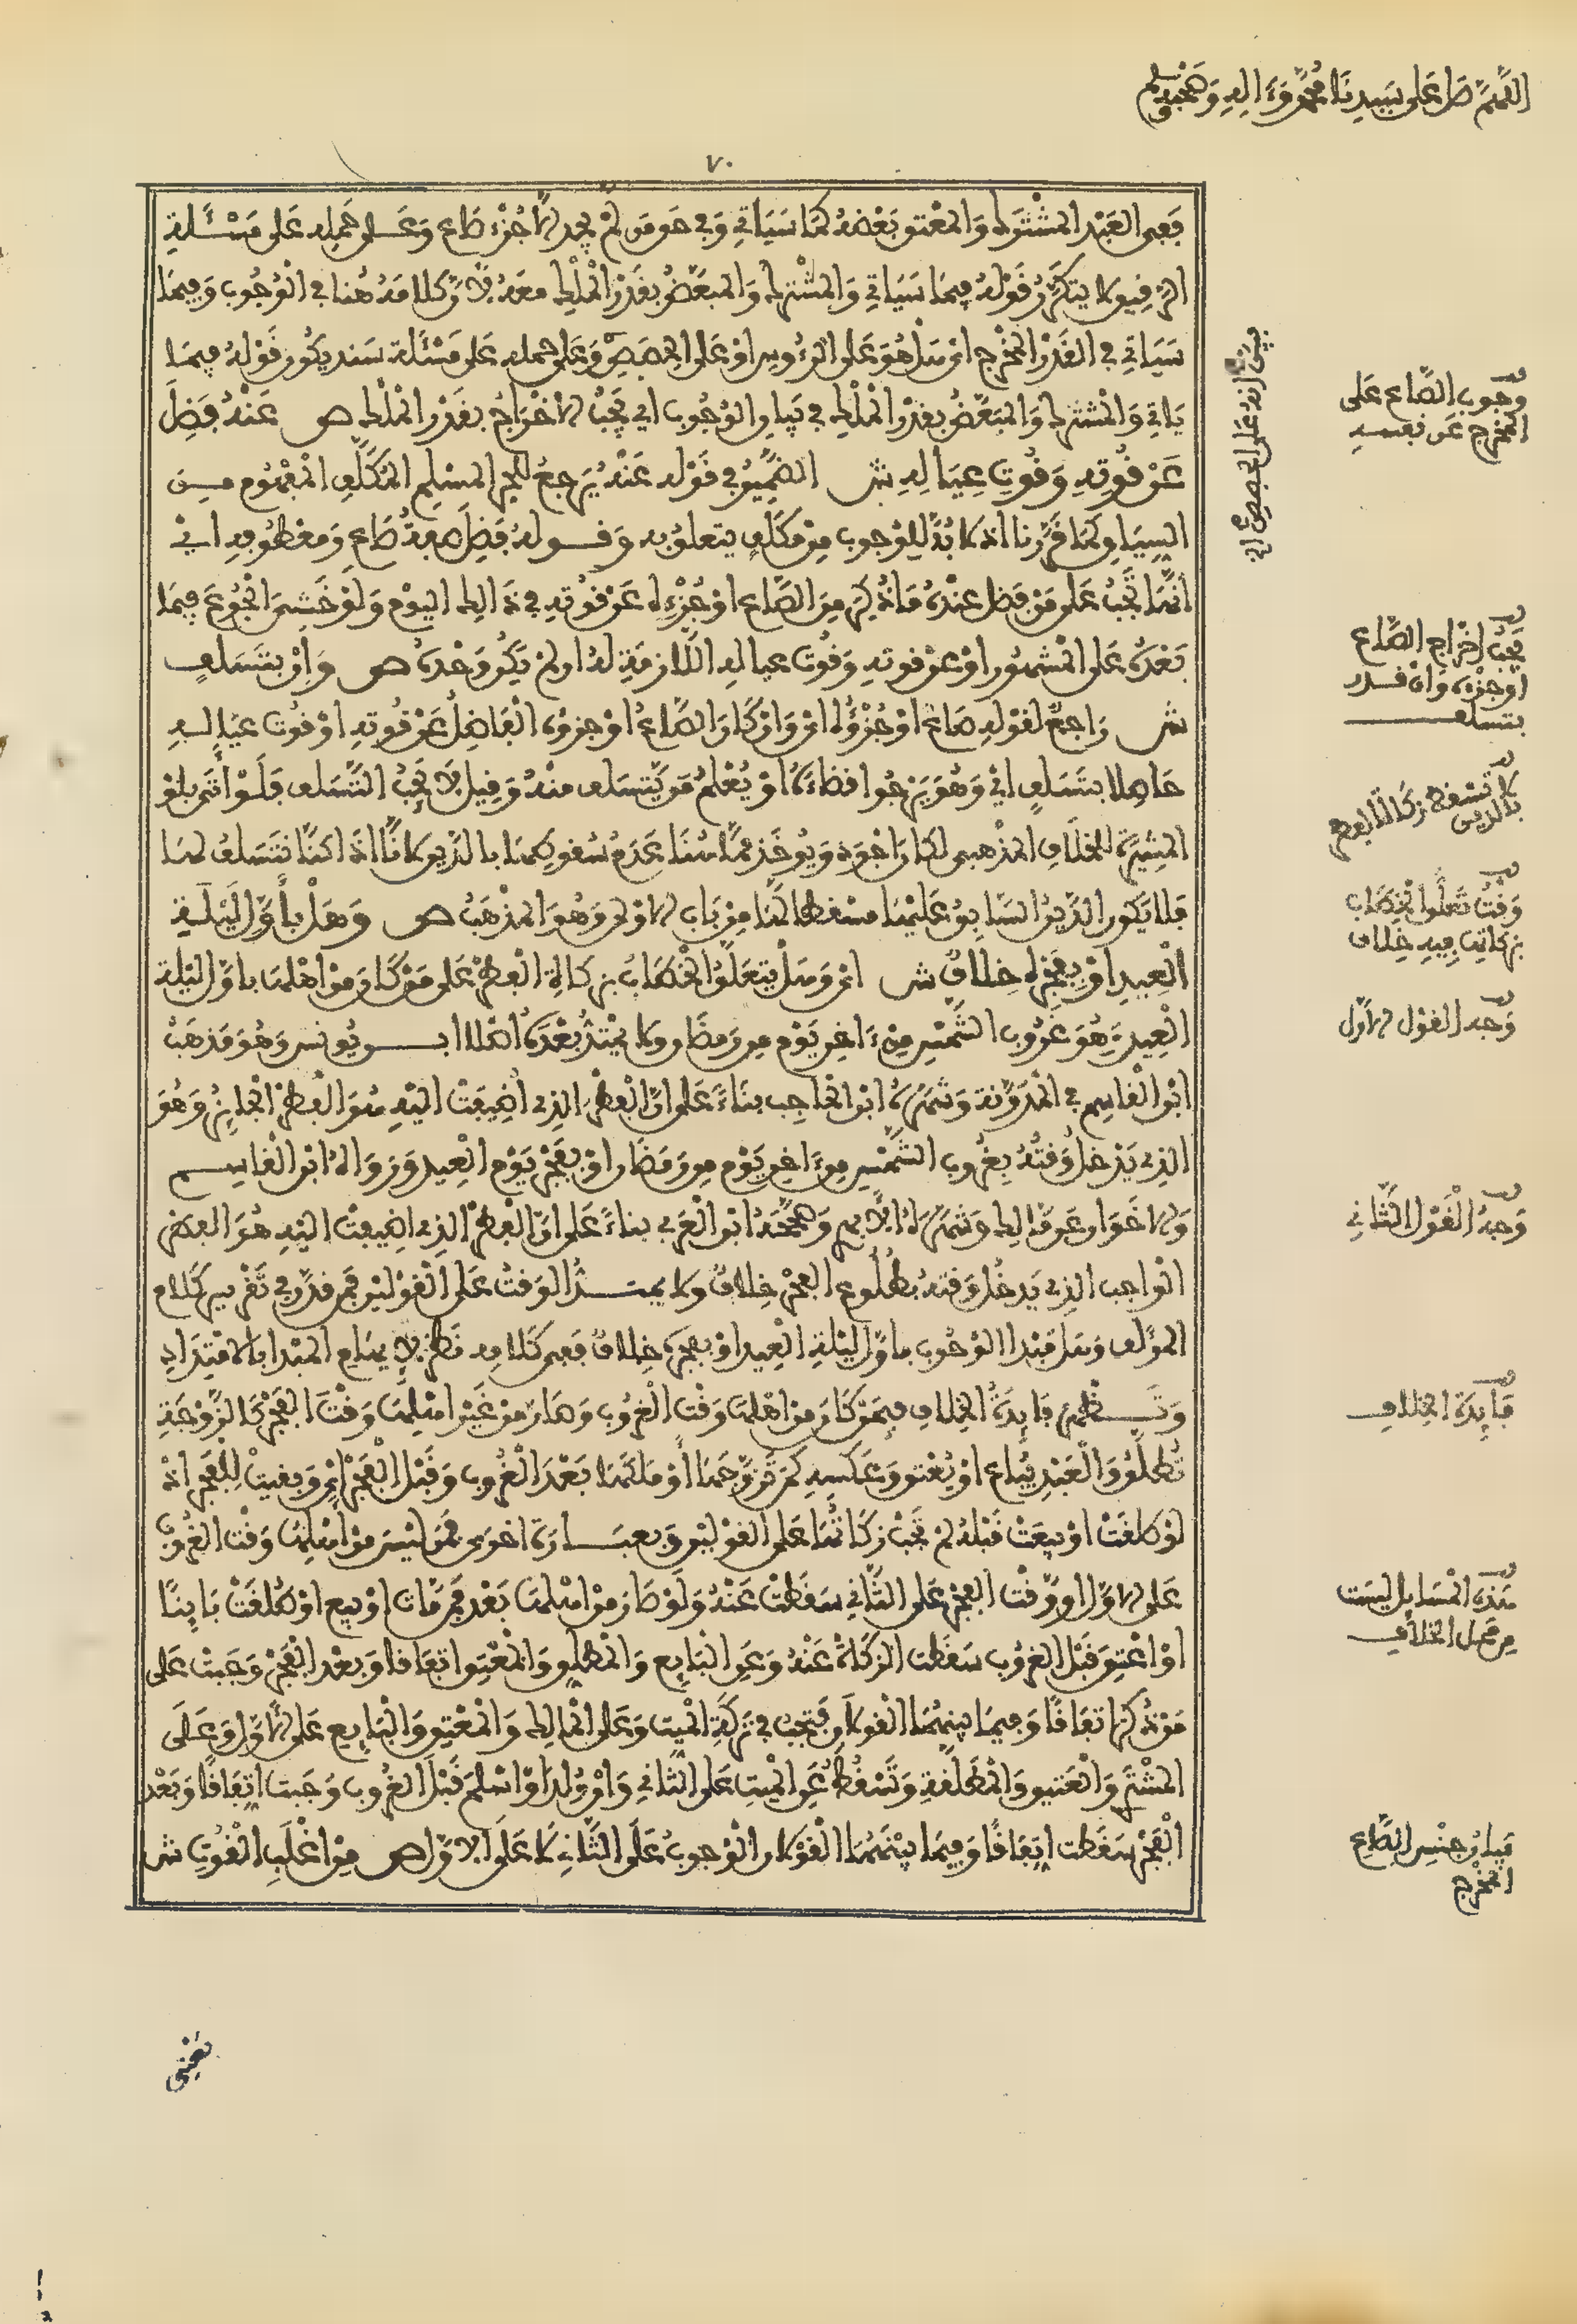 اللهم صل على سيدنا محمد وءاله وصحبه وسلم
٧٠
ففي العبد المشترك والمعتق بعضه كما سياتي وفي حق من لم يجد الا جزء صاع وعلى حمله على مسئلة
الرقيق لا يتكرر قوله فيما سياتي والمشترك والمبعض بقدر الملك معه لان كلامه هنا في الوجوب وفيما
سياتي في القدر المخرج اي هل هو على الرءوس او على الحصص وعلى حمله على مسئلة سند يكون قوله فيما
ياتي والمشترك والمبعض بقدر الملك في بيان الوجوب اي يجب الاخراج بقدر الملك ص عنه فضل
عن قوته وقوت عياله ش الضمير في قوله عنه يرجع للحر المسلم المكلف المفهوم من
السياق كما قررنا اذ لا بد للوجوب من مكلف يتعلق به وقوله فضل صفة صاع ومعطوفه اي
انما تجب على من فضل عنده ما ذكر من الصاع او جزءه عن قوته في ذالك اليوم ولو خشي الجوع فيما
بعده على المشهور او عن قوته وقوت عياله اللازمة له ان لم يكن وحده ص وان بتسلف
ش راجع لقوله صاع او جزؤه اي وان كان الصاع او جزؤه الفاضل عن قوته او قوت عياله
حاصلا بتسلف اي وهو يرجوا قضاءه او يعلم من يتسلف منه وقيل لا يجب التسلف فلو اتى بلو
المشيرة للخلاف المذهبي لكان اجود ويوخذ مما هنا عدم سقوطها بالدين لانا اذا كنا نتسلف لها
فلا يكون الدين السابق عليها مسقطا لها من باب الاولى وهو المذهب ص وهل باول ليلة
العيد او بفجره خلاف ش اي وهل يتعلق الخطاب بزكاة الفطر على من كان من اهلها باول ليلة
العيد وهو غروب الشمس من ءاخر يوم من رمضان ولا يمتد بعده اصلا ابن يونس وهو مذهب
ابن القاسم في المدونة وشهره ابن الحاجب بناء على ان الفطر الذي اضيفت اليه هو الفطر الجائز وهو
الذي يدخل وقته بغروب الشمس من ءاخر يوم من رمضان او بفجر يوم العيد ورواه ابن القاسم
والاخوان عن مالك وشهره الابهري وصححه ابن العربي بناء على ان الفطر الذي اضيفت اليه هو الفطر
الواجب الذي يدخل وقته بطلوع الفجر خلاف ولا يمتد الوقت على القولين فمن قدر في تقرير كلام
المؤلف وهل مبدا الوجوب باول ليلة العيد او بفجره خلاف ففي كلامه نظر لايهام المبدا بالامتداد
وتظهر فايدة الخلاف فيمن كان من اهلها وقت الغروب وصار من غير اهلها وقت الفجر كالزوجة
تطلق والعبد يباع او يعتق وعكسه كمن تزوجها او ملكها بعد الغروب وقبل الفجر اي وبقيت للفجر اذ
لو طلقت او بيعت قبله لم تجب زكاتها على القولين وبعبارة اخرى فمن ليس من اهلها وقت الغروب
على الاول او وقت الفجر على الثاني سقطت عنه ولو صار من اهلها بعد فمن مات او بيع او طلقت باينا
او اعتق قبل الغروب سقطت الزكاة عنه وعن البايع والمطلق والمعتق اتفاقا وبعد الفجر وجبت على
من ذكر اتفاقا وفيما بينهما القولان فتجب في تركة الميت وعلى المالك والمعتق والبايع على الاول وعلى
المشتر والعتيق والمطلقة وتسقط عن الميت على الثاني وان ولد او اسلم قبل الغروب وجبت اتفاقا وبعد
الفجر سقطت اتفاقا وفيما بينهما القولان الوجوب على الثاني لا على الاول ص من اغلب القوت ش
وجوب الصاع على
المخرج عن نفسه
يجب اخراج الصاع
او جزءه وان قدر
بتسلف
لا تسقط زكاة الفطر
بالدين
وقت تعلق الخطاب
بزكاته فيه خلاف
وجه القول الاول
وجه القول الثاني
فايدة الخلاف
هذه المسايل ليست
من محل الخلاف
بيان جنس الصاع
المخرج